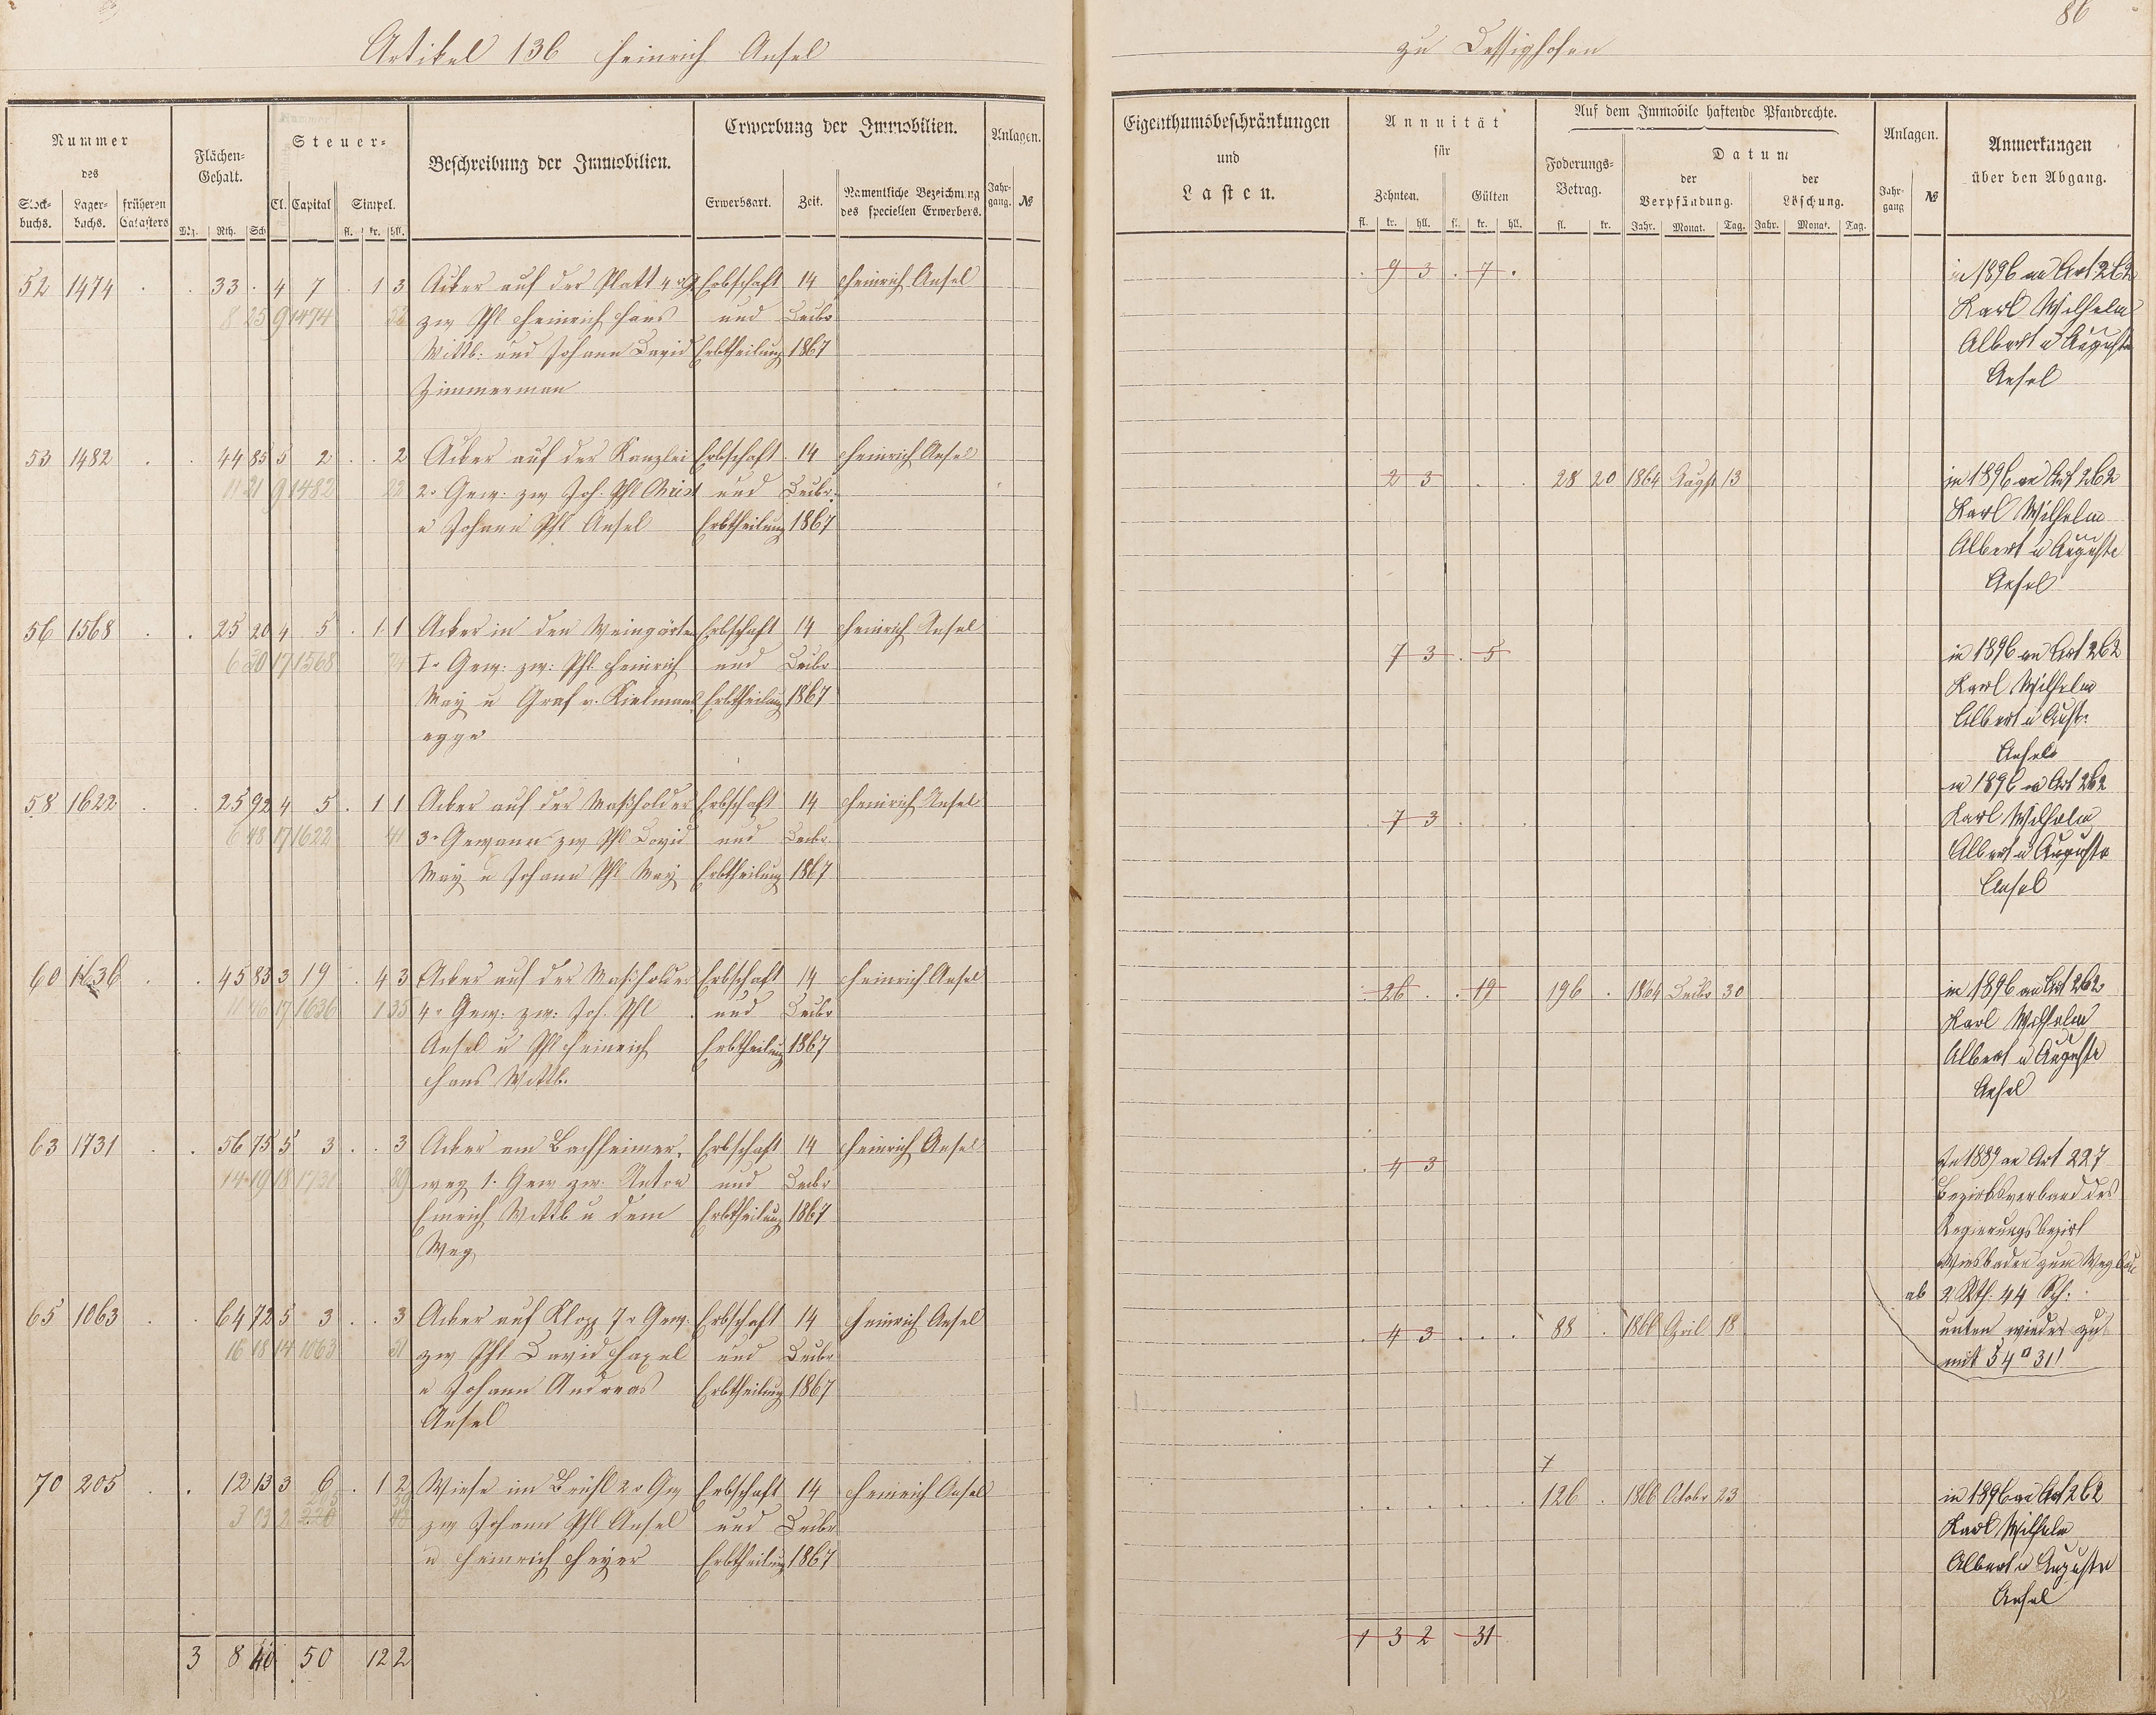 86
Artikel 136 Heinrich Ansel
zu Dessighofen
Nummer
des
Stock-
buchs.
Lager-
buchs.
früheren
Catasters
Flächen-
Gehalt.
Mg. Rth. Sch.
Steuer-
Cl. Capital Simpel.
fl. kr. hll.
Beschreibung der Immobilien.
Erwerbung der Immobilien.
Erwerbsart. Zeit. Namentliche Bezeichnung
des speciellen Erwerbers.
Anlagen.
Jahr-
gang. №
Eigenthumsbeschränkungen
und
Lasten.
Annuität
für
Zehnten. Gülten
fl. kr. hll. fl. kr. hll.
Auf dem Immobile haftende Pfandrechte.
Foderungs-
Betrag.
fl. kr.
Datum
der
Verpfändung.
der
Löschung.
Jahr. Monat. Tag. Jahr. Monat. Tag.
Anlagen.
Jahr-
gang №
Anmerkungen
über den Abgang.
52 1474 . . 33 . 4 7 . 1 3 Acker auf der Platt 4r G Erbschaft 14 Heinrich Ansel
8 25 9 1474 zw Phl Heinrich Hans und Decbr
Wittb: und Johann David Erbtheilung 1867
Zimmerman
. 9 3 . 7 .
in 1896 an Art 262
Karl Wilhelm
Albert u Auguste
Ansel
53 1482 . . 44 85 5 2 . . 2 Acker auf der Kanzlei Erbschaft 14 Heinrich Ansel
11 21 9 1482 22 2r Gew: zw Joh. Phl Christ und Decbr.
u Johann Phl Ansel Erbtheilung 1867
2 3 . . 28 20 1864 Augst 13
in 1896 an Art 262
Karl Wilhelm
Albert u Auguste
Ansel
56 1568 . . 25 20 4 5 . 1 1 Acker in den Weingärten Erbschaft 14 Heinrich Ansel
6 30 17 1568 1r Gew: zw: Phl Heinrich und Decbr
May u Graf v. Kielmans Erbtheilung 1867
egge
7 3 . 5
in 1896 an Art 262
Karl Wilhelm
Albert u Aust.
Ansel
58 1622 . . 25 92 4 5 . 1 1 Acker auf der Maßholder Erbschaft 14 Heinrich Ansel
6 48 17 1622 41 3r Gewann zw Phl David und Decbr.
May u Johann Phl May Erbtheilung 1867
. 7 3 . . .
in 1896 an Art 262
Karl Wilhelm
Albert u Auguste
Ansel
60 1636 . . 45 83 3 19 . 4 3 Acker auf der Maßholder Erbschaft 14 Heinrich Ansel
11 46 17 1636 1 35 4r Gew: zw: Joh. Phl und Decbr
Ansel u Phl Heinrich Erbtheilung 1867
Hans Wittb.
. 26 . . 19 196 . 1864 Decbr 30
in 1896 an Art 262
Karl Wilhelm
Albert u Auguste
Ansel
63 1731 . . 56 75 5 3 . . 3 Acker am Bachheimer- Erbschaft 14 Heinrich Ansel
14 19 18 1731 39 weg 1. Gew zw. Anton und Decbr
Emrich Wittb u dem Erbtheilung 1867
Weg
. 4 3
In 1889 an Art 227
Bezirksverband des
Regierungsbezirk
Wiesbaden zum Wegbau
ab 2 Rth: 44 Sch:
unten wieder zu
mit 54° 31'
65 1063 . . 64 72 5 3 . . 3 Acker auf Klopp 7r Gew. Erbschaft 14 Heinrich Ansel
16 18 14 1063 31 zw Phl David Haxel und Decbr
u Johann Andreas Erbtheilung 1867
Ansel
. 4 3 . . . 88 . 1866 April 18
70 205 . . 12 13 3 6 . 1 2 Wiese im Brühl 2r Gew Erbschaft 14 Heinrich Ansel
3 03 2 zw Johann Phl Ansel und Decbr
u Heinrich Heyer Erbtheilung 1867
. . . . . 126 . 1866 Octobr 23
in 1896 an Art 262
Karl Wilhelm
Albert u Auguste
Ansel
3 8 40 50 12 2
1 3 2 31